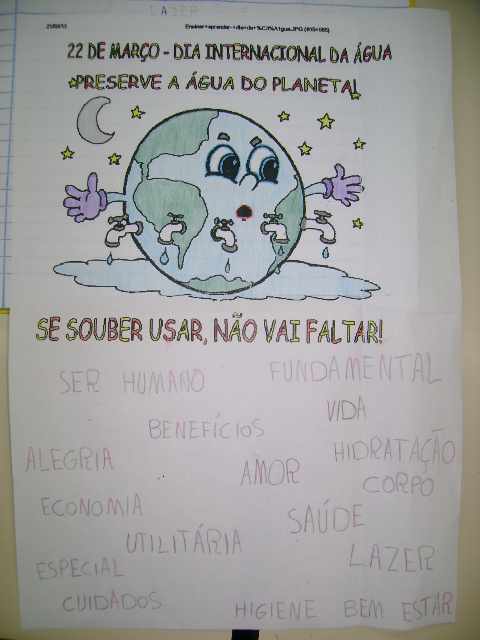 LAZER
21/03/13
22 DE MARÇO - DIA INTERNACIONAL DA ÁGUA
PRESERVE A ÁGUA DO PLANETA!
SE SOUBER USAR, NÃO VAI FALTAR!
SER HUMANO FUNDAMENTAL
VIDA
BENEFÍCIOS
ALEGRIA HIDRATAÇÃO
AMOR CORPO
ECONOMIA
SAÚDE
UTILITÁRIA
LAZER
ESPECIAL
CUIDADOS HIGIENE BEM ESTAR